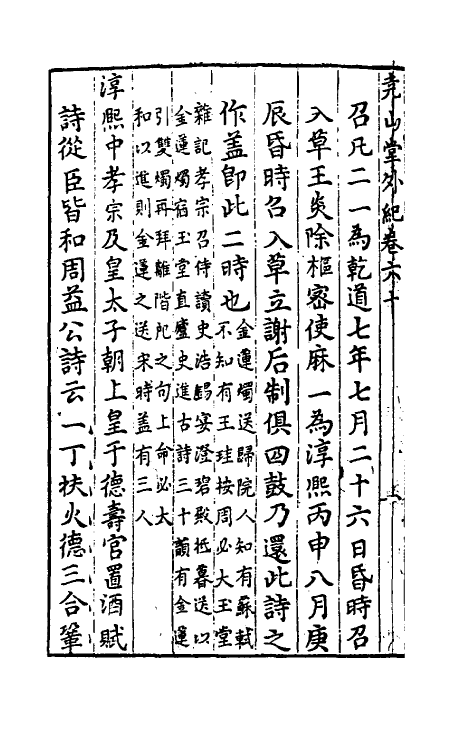 堯山堂外紀卷六十
召凡二一為乾道七年七月二十六日昏時召
入草王炎除樞密使麻一為淳熙丙申八月庚
辰昏時召入草立謝后制俱四鼓乃還此詩之
作蓋卽此二時也
金蓮燭送歸院人知有蘇軾
不知有王珪按周必大玉堂
雜記孝宗召侍讀史浩錫宴澄碧殿抵暮送以
金蓮燭宿玉堂直廬史進古詩三十韻有金蓮
引雙燭再拜離階戺之句上命必大
和以進則金蓮之送宋時蓋有三人
淳熙中孝宗及皇太子朝上皇于德壽宮置酒賦
詩從臣皆和周益公詩云一丁扶火德三合鞏